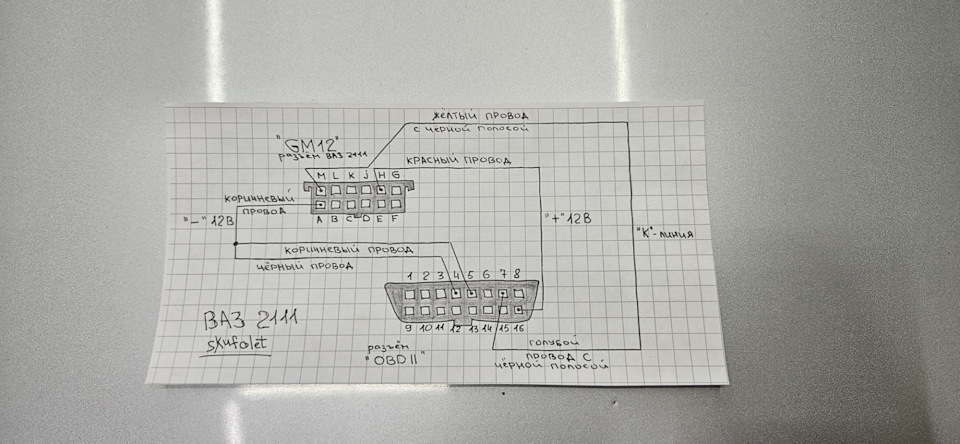 ЖЁЛТЫЙ ПРОВОД
С ЧЁРНОЙ ПОЛОСОЙ
"GM12"
разъём ВАЗ 2111
КРАСНЫЙ ПРОВОД
M L K J H G
КОРИЧНЕВЫЙ
ПРОВОД
A B C D E F
"−" 12В
"+" 12В
"К"-линия
КОРИЧНЕВЫЙ ПРОВОД
ЧЁРНЫЙ ПРОВОД
1 2 3 4 5 6 7 8
9 10 11 12 13 14 15 16
ВАЗ 2111
skufolet
разъём
"OBD II"
ГОЛУБОЙ
ПРОВОД С
ЧЁРНОЙ ПОЛОСОЙ